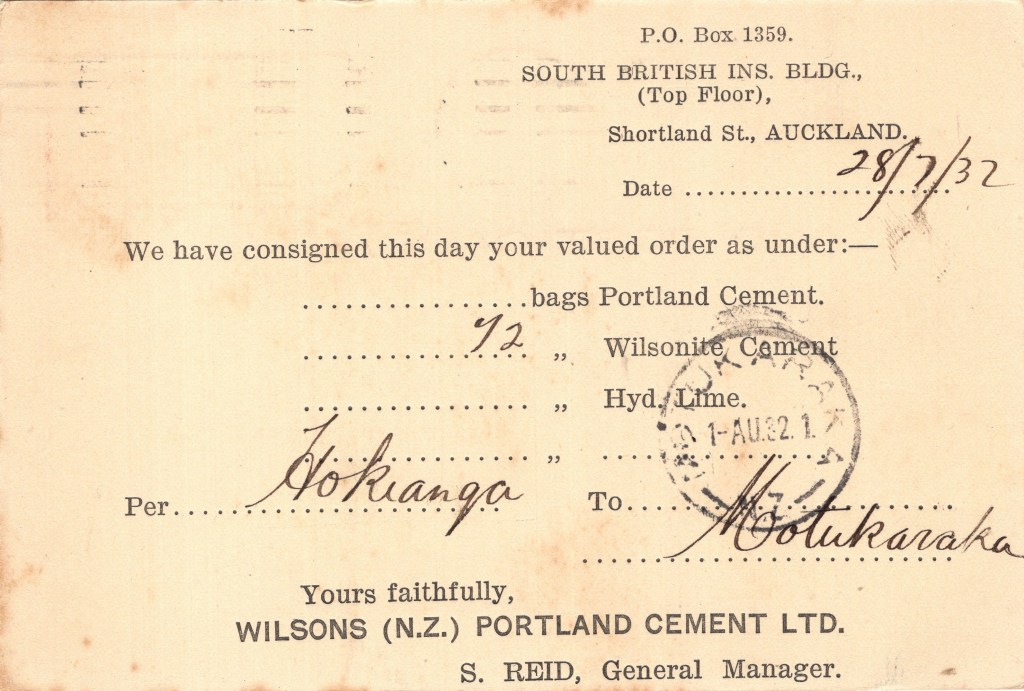 P.O. Box 1359.
SOUTH BRITISH INS. BLDG.,
(Top Floor),
Shortland St., AUCKLAND.
Date ........................ 28/7/32
We have consigned this day your valued order as under:—
....................bags Portland Cement.
.................... 72 „ Wilsonite Cement
.................... „ Hyd. Lime.
.................... „ ....................
Per .................... Hokianga To .................... Motukaraka
Yours faithfully,
WILSONS (N.Z.) PORTLAND CEMENT LTD.
S. REID, General Manager.
MOTUKARAKA
1-AU.32.1.
N.Z